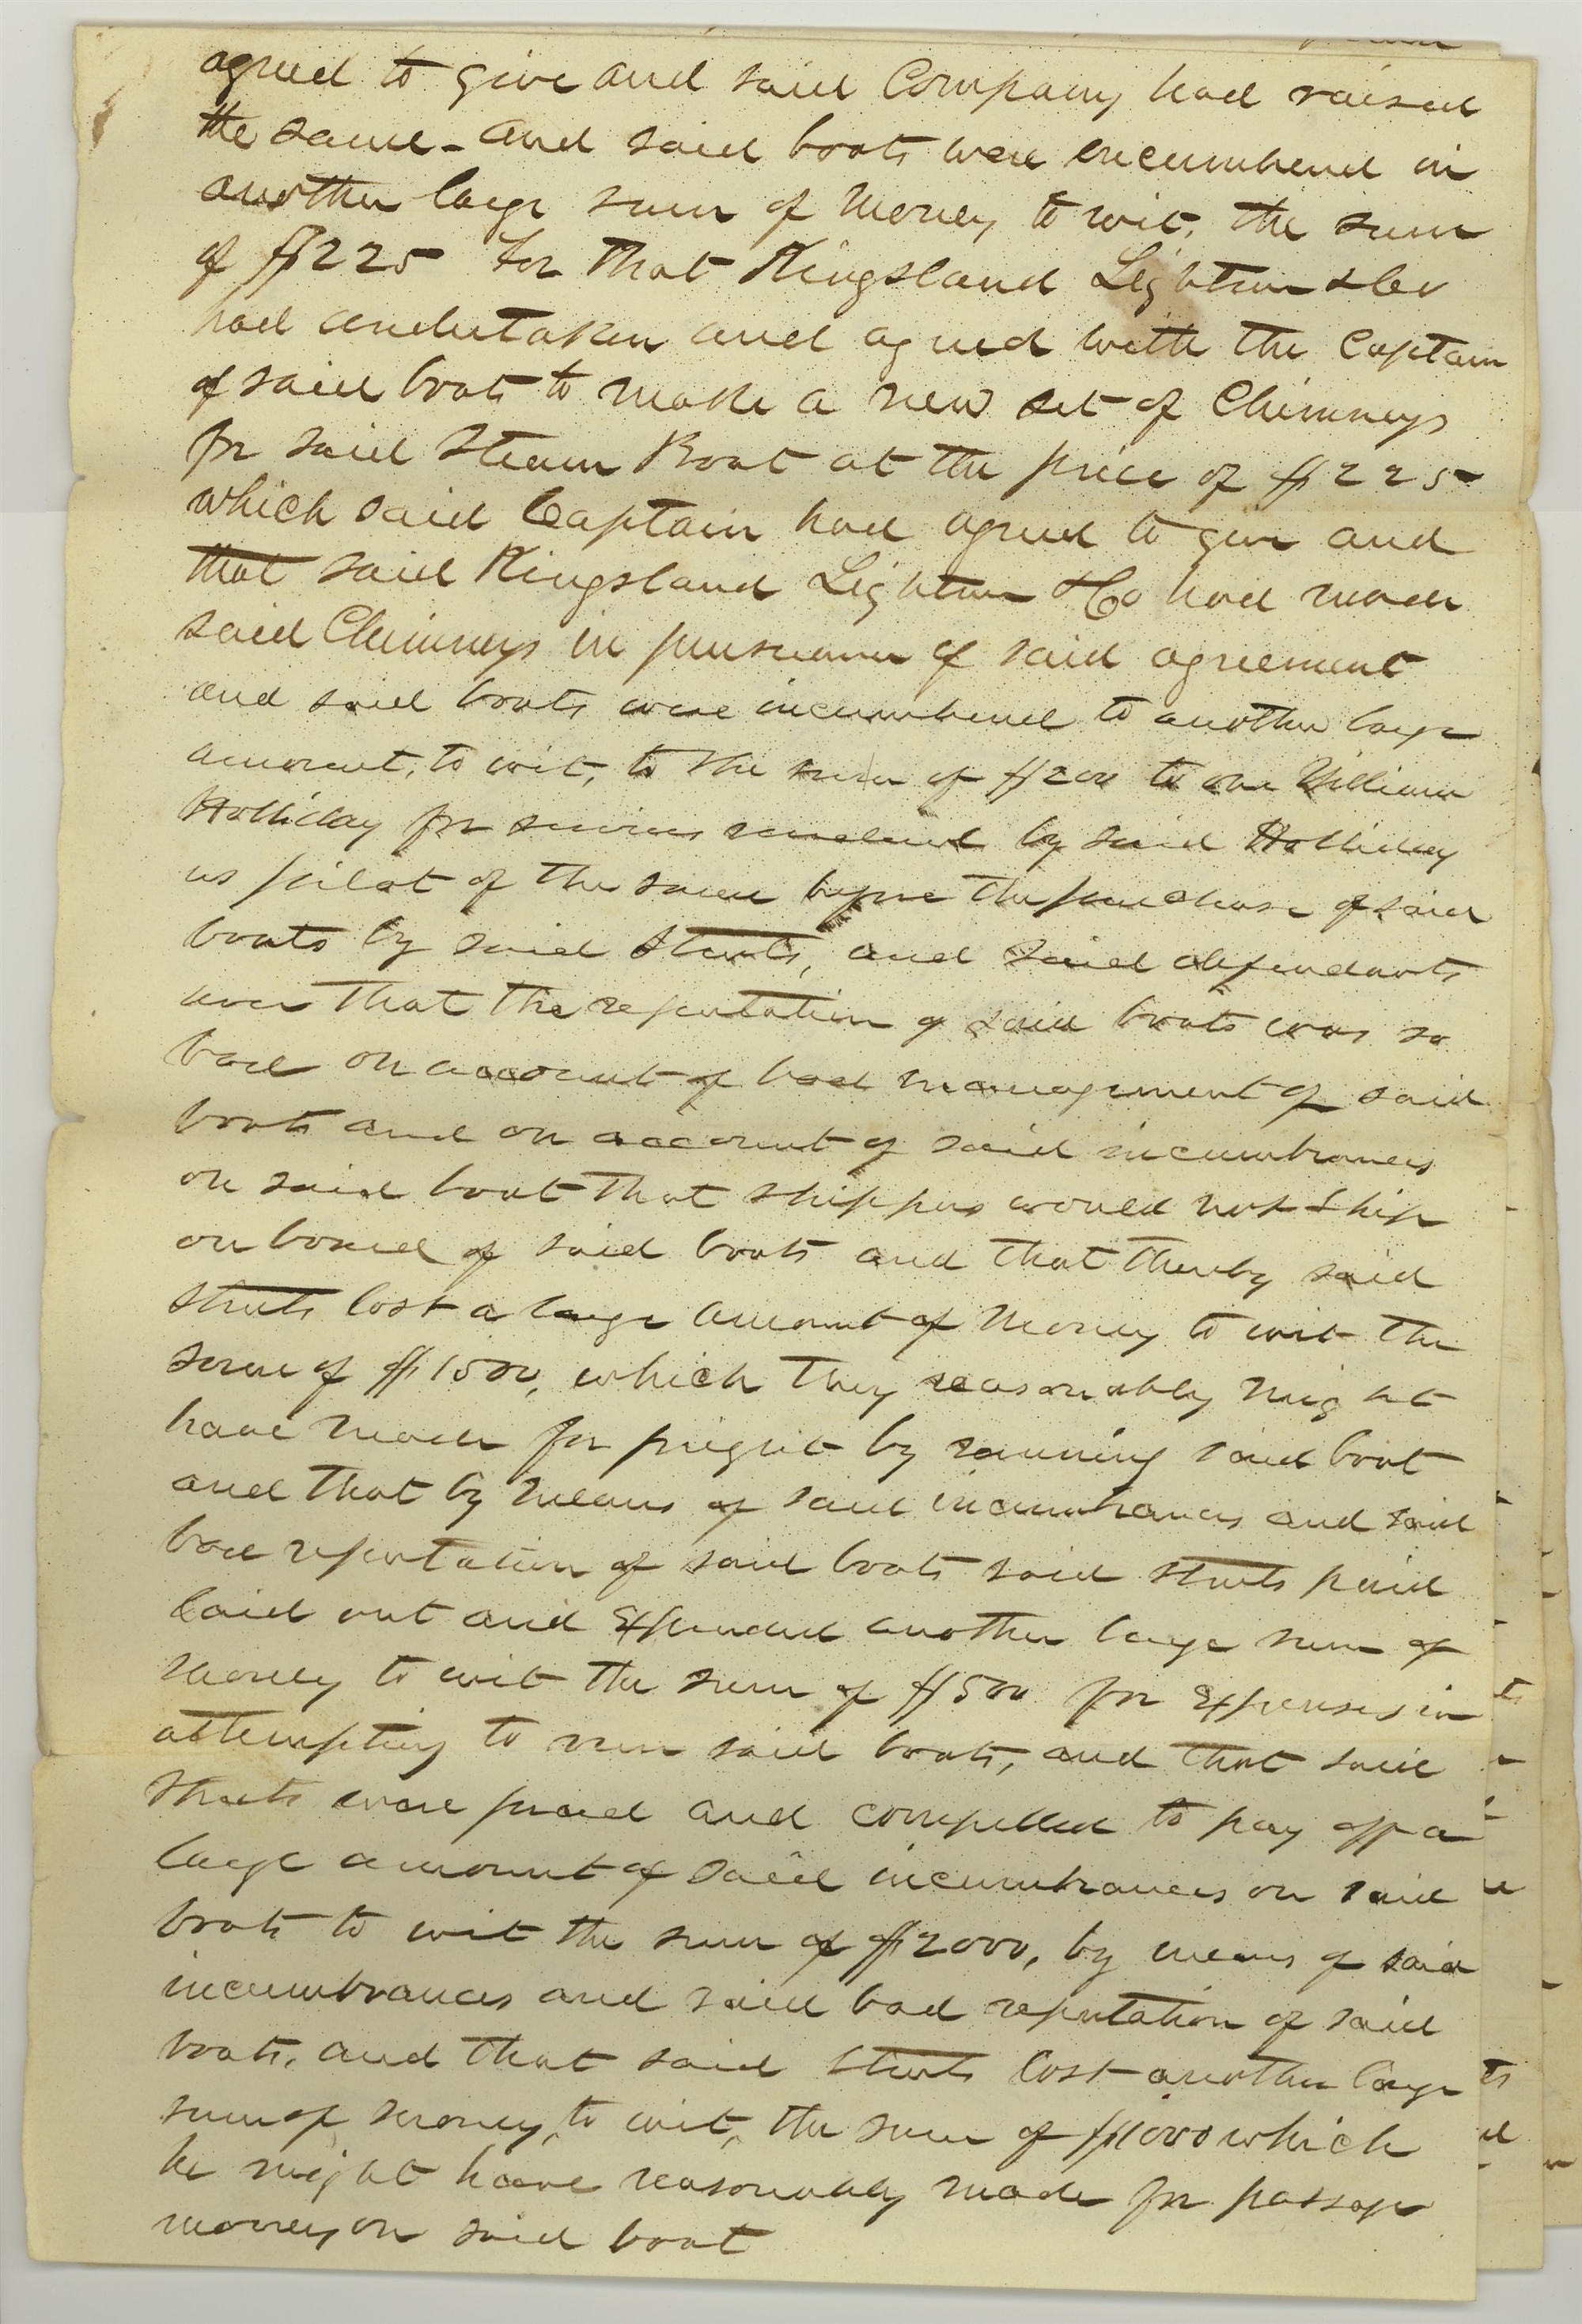 agreed to give and said Company had raised
the same - and said boats were encumbered in
another large sum of Money to wit, the sum
of $225 for that Kingsland Lightner & Co
had undertaken and agreed with the Captain
of said boats to make a new set of Chimneys
for said Steam Boat at the price of $225
which said Captain had agreed to give and
that said Kingsland Lightner & Co had made
said Chimneys in pursuance of said agreement
and said boats were incumbered to another large
amount, to wit, to the sum of $200 to one William
Holliday for services rendered by said Holliday
as pilot of the same before the purchase of said
boats by said Struts, and said defendants
aver that the reputation of said boats was so
bad on account of bad management of said
boats and on account of said incumbrances
on said boat that shippers would not ship
on board of said boats and that thereby said
Struts lost a large amount of Money to wit the
sum of $1500, which they reasonably might
have made for freight by running said boat
and that by means of said incumbrances and said
bad reputation of said boats said Struts paid
laid out and Expended another large sum of
Money to wit the sum of $500 for Expenses in
attempting to run said boats, and that said
Struts were forced and compelled to pay off a
large amount of said incumbrances on said
boats to wit the sum of $2000, by means of said
incumbrances and said bad reputation of said
boats, and that said Struts lost another large
sum of money, to wit, the sum of $1000 which
he might have reasonably made for passage
money on said boat